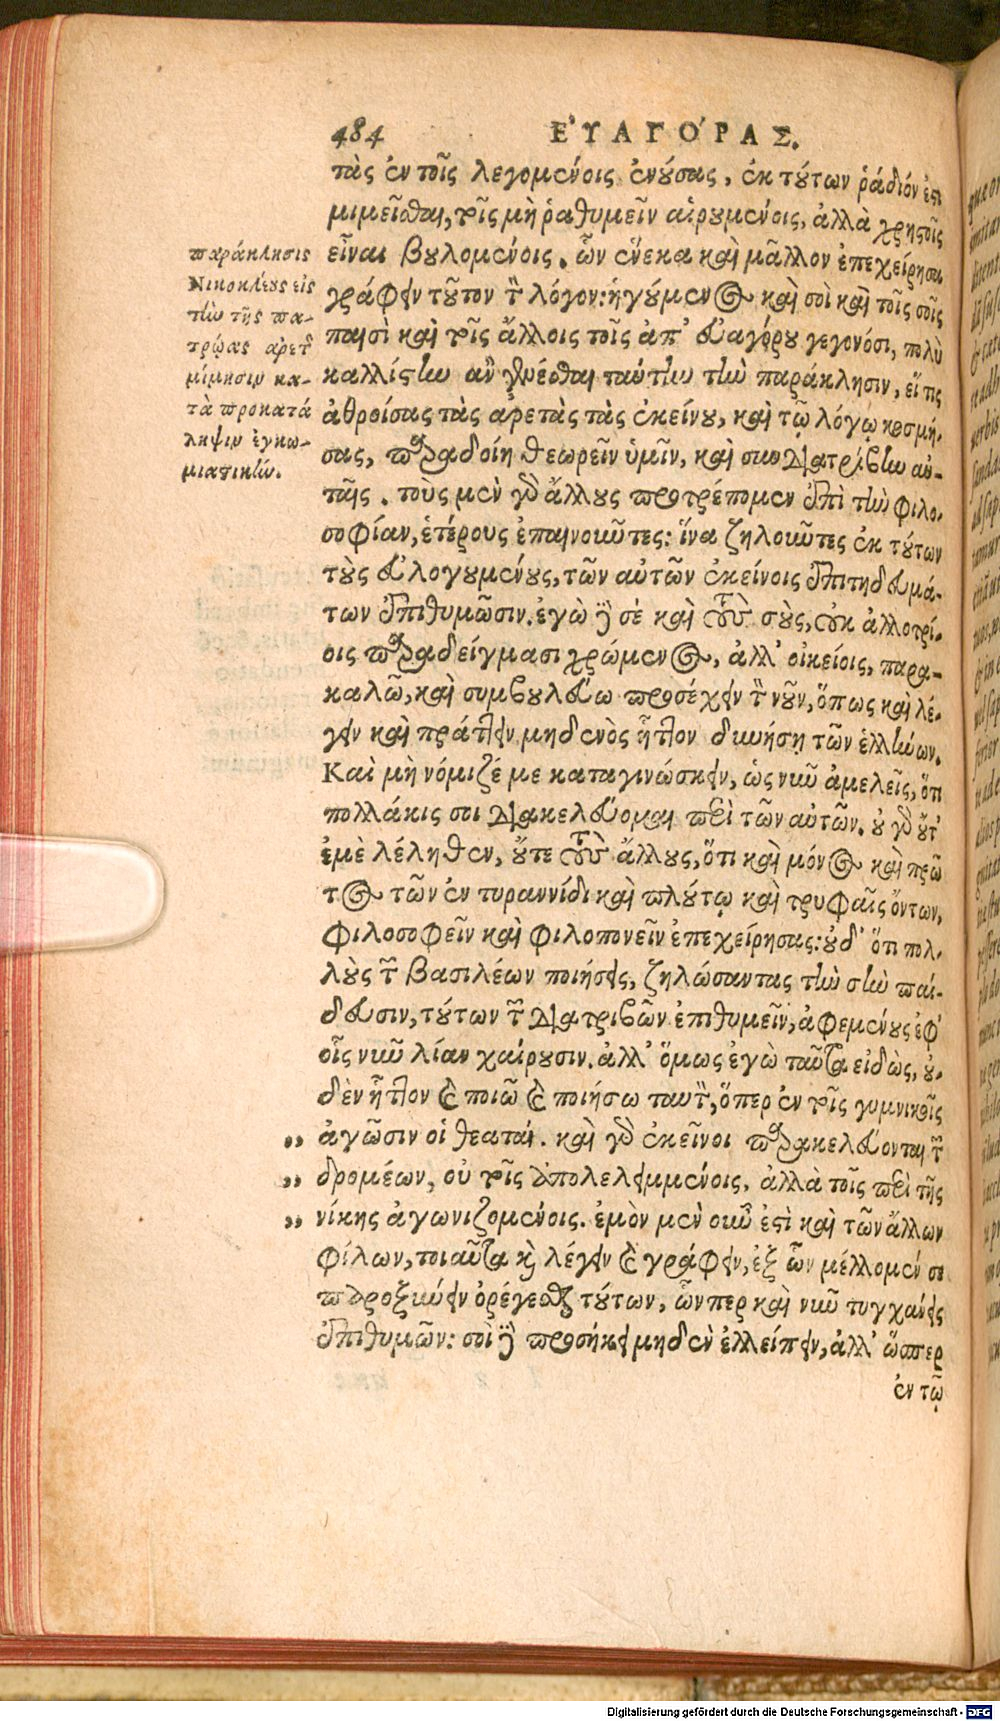 484 ΕΥ̓ΑΓΟΎΡΑΣ.
τὰς ἐν τοῖς λεγομένοις ἐνούσας, ἐκ τούτων ῥάδιόν ἐστι
μιμεῖσθαι, τοῖς μὴ ῥαθυμεῖν αἱρουμένοις, ἀλλὰ χρηστοῖς
εἶναι βουλομένοις. ὧν ἕνεκα καὶ μᾶλλον ἐπεχείρησα
γράφειν τοῦτον τὸν λόγον: ἡγούμενος καὶ σοὶ καὶ τοῖς σοῖς
παισὶ καὶ τοῖς ἄλλοις τοῖς ἀπ' εὐαγόρου γεγονόσι, πολὺ
καλλίστην ἂν γενέσθαι ταύτην τὴν παράκλησιν, εἴ τις
ἀθροίσας τὰς ἀρετὰς τὰς ἐκείνου, καὶ τῷ λόγῳ κοσμή-
σας, παραδοίη θεωρεῖν ὑμῖν, καὶ συνδιατρίβειν αὐ-
ταῖς. τοὺς μὲν γὰρ ἄλλους προτρέπομεν ἐπὶ τὴν φιλο-
σοφίαν, ἑτέρους ἐπαινοῦντες: ἵνα ζηλοῦντες ἐκ τούτων
τοὺς εὐλογουμένους, τῶν αὐτῶν ἐκείνοις ἐπιτηδευμά-
των ἐπιθυμῶσιν. ἐγὼ δὲ σὲ καὶ τοὺς σοὺς, οὐκ ἀλλοτρί-
οις παραδείγμασι χρώμενος, ἀλλ' οἰκείοις, παρα-
καλῶ, καὶ συμβουλεύω προσέχειν τὸν νοῦν, ὅπως καὶ λέ-
γειν καὶ πράττειν μηδενὸς ἧττον δυνήσῃ τῶν ἑλλήνων.
Καὶ μὴ νόμιζέ με καταγινώσκειν, ὡς νῦν ἀμελεῖς, ὅτι
πολλάκις σοι διακελεύομαι περὶ τῶν αὐτῶν. οὐ γὰρ οὔτ'
ἐμὲ λέληθεν, οὔτε τοὺς ἄλλους, ὅτι καὶ μόνος καὶ πρῶ
τος τῶν ἐν τυραννίδι καὶ πλούτῳ καὶ τρυφαῖς ὄντων,
φιλοσοφεῖν καὶ φιλοπονεῖν ἐπεχείρησας: οὐδ' ὅτι πολ-
λοὺς τῶν βασιλέων ποιήσεις, ζηλώσαντας τὴν σὴν παί-
δευσιν, τούτων τῶν διατριβῶν ἐπιθυμεῖν, ἀφεμένους ἐφ'
οἷς νῦν λίαν χαίρουσιν. ἀλλ' ὅμως ἐγὼ ταῦτα εἰδὼς, οὐ-
δὲν ἧττον καὶ ποιῶ καὶ ποιήσω ταυτὸν, ὅπερ ἐν τοῖς γυμνικοῖς
„ ἀγῶσιν οἱ θεαταί. καὶ γὰρ ἐκεῖνοι παρακελεύονται τῶν
„ δρομέων, οὐ τοῖς ἀπολελειμμένοις, ἀλλὰ τοῖς περὶ τῆς
„ νίκης ἀγωνιζομένοις. ἐμὸν μὲν οὖν ἐστὶ καὶ τῶν ἄλλων
φίλων, τοιαῦτα καὶ λέγειν καὶ γράφειν, ἐξ ὧν μέλλομέν σε
παροξύνειν ὀρέγεσθαι τούτων, ὧνπερ καὶ νῦν τυγχάνεις
ἐπιθυμῶν: σοὶ δὲ προσήκει μηδὲν ἐλλείπειν, ἀλλ' ὥσπερ
ἐν τῷ
παράκλησις
Νικοκλέους εἰς
τὴν τῆς πα-
τρῴας ἀρετῆς
μίμησιν κα-
τὰ προκατά
ληψιν ἐγκω-
μιαστικήν.
Digitalisierung gefördert durch die Deutsche Forschungsgemeinschaft - DFG